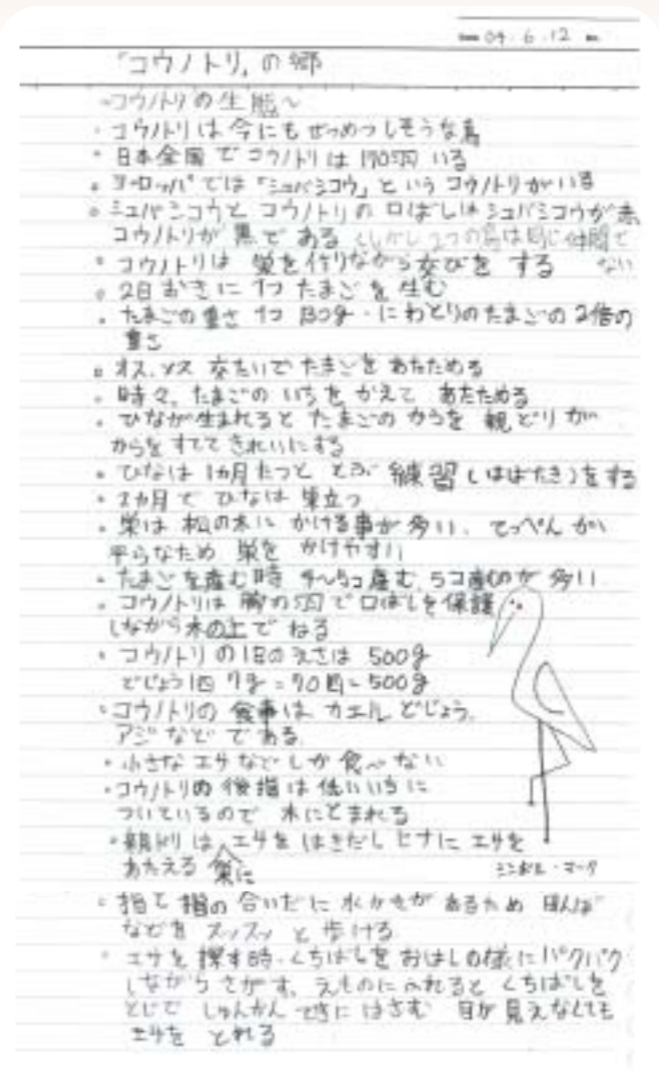 04.6.12
「コウノトリ」の郷
~コウノトリの生態~
・コウノトリは今にもぜつめつしそうな鳥
・日本全国でコウノトリは190羽いる
・ヨーロッパでは「シュバシコウ」というコウノトリがいる
・シュバシコウとコウノトリの口ばしはシュバシコウが赤
コウノトリが黒である(しかし2つの鳥は同じ仲間で
ない
・コウノトリは巣を作りながら交びをする
・2日おきに1つたまごを生む
・たまごの重さ1つ130g・にわとりのたまごの2倍の
重さ
・オス、メス交たいでたまごをあたためる
・時々、たまごのいちをかえてあたためる
・ひなが生まれるとたまごのからを親どりが
からをすててきれいにする
・ひなは1カ月たつととぶ練習(はばたき)をする
・2カ月でひなは巣立つ
・巣は松の木にかける事が多い、てっぺんが
平らなため巣をかけやすい
・たまごを産む時4〜5コ産む、5コ産むのが多い
・コウノトリは胸の羽で口ばしを保護
しながら木の上でねる
・コウノトリの1日のえさは500g
どじょう1匹7g=70匹=500g
・コウノトリの食事はカエル、どじょう、
アジなどである
・小さなエサなどしか食べない
・コウノトリの後指は低いいちに
ついているので木にとまれる
・親ドリはエサをはきだしヒナにエサを
あたえる 巣に
シンボル・マーク
・指と指の合いだに水かきがあるため田んぼ
などをスッスッと歩ける
・エサを探す時、くちばしをおはしの様にパクパク
しながらさがす、えものにふれるとくちばしを
とじてしゅんかんてきにはさむ 目が見えなくても
エサをとれる